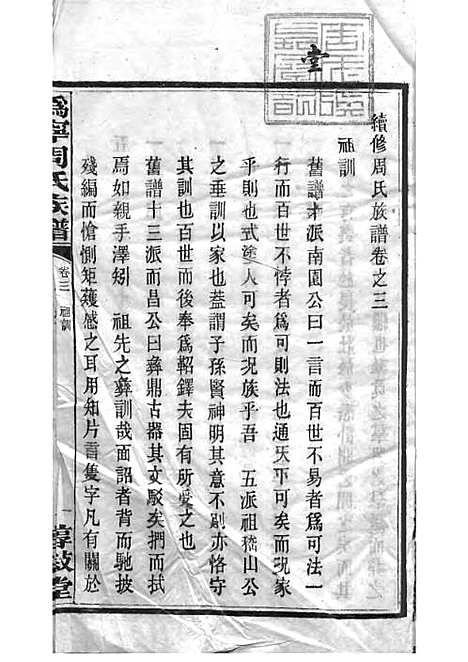 堂
續修周氏族譜卷之三
祖訓
舊譜才派南園公曰一言而百世不易者爲可法一
行而百世不悖者爲可則法也通天下可矣而況家
乎則也式途人可矣而況族乎吾 五派祖嵇山公
之垂訓以家也蓋謂子孫賢神明其意不則亦恪守
其訓也百世而後奉爲軺鐸夫固有所愛之也
舊譜十三派而昌公曰彝鼎古器其文駁矣捫而拭
焉如親手澤矧 祖先之彝訓哉面詔者背而馳披
殘編而愴惻矩矱感之耳用知片言隻字凡有關於
爲寧周氏族譜
卷三 祖訓
一
敦堂